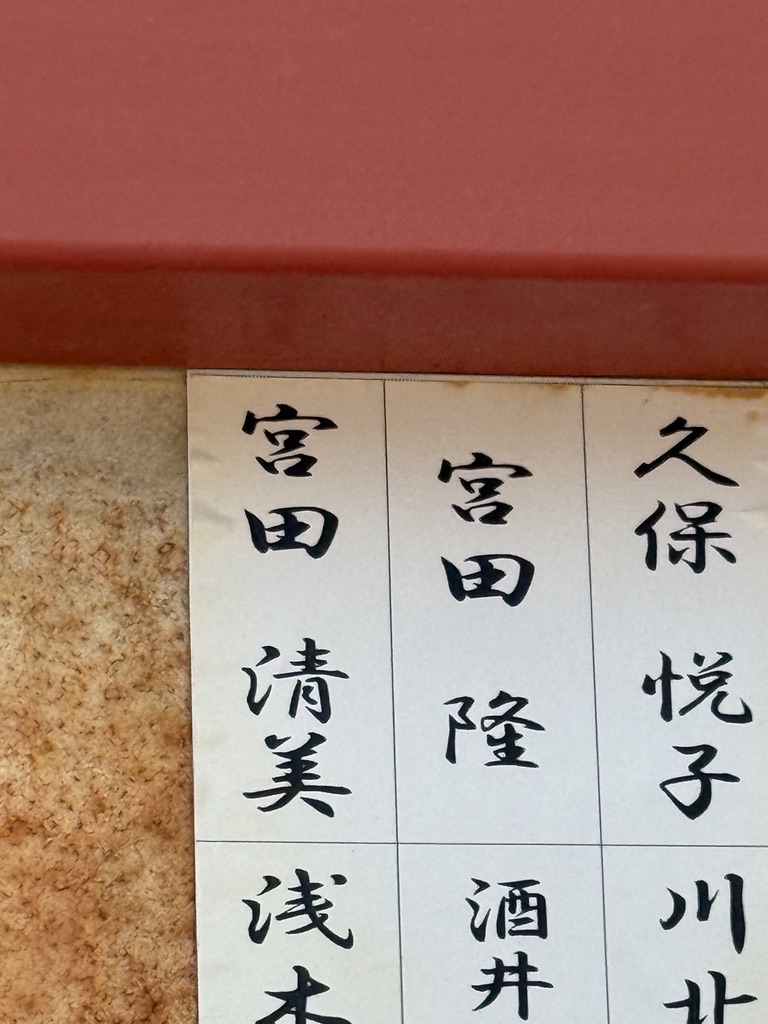 久保 悦子
宮田 隆
宮田 清美
川北
酒井
浅木